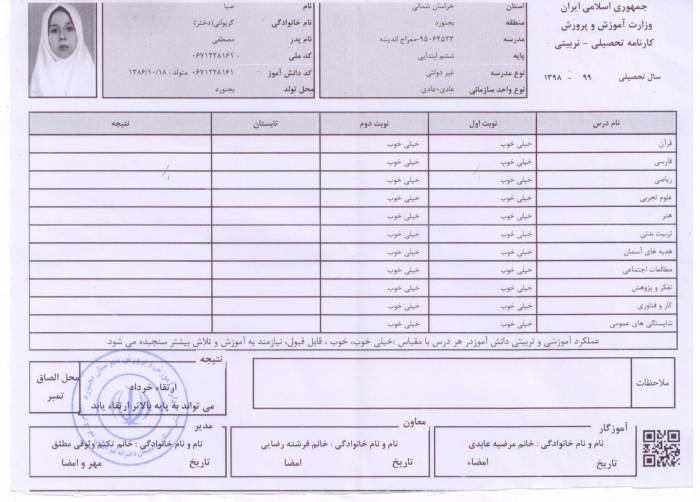 جمهوری اسلامی ایران
وزارت آموزش و پرورش
کارنامه تحصیلی - تربیتی
سال تحصیلی ۹۹ - ۱۳۹۸
استان خراسان شمالی
منطقه بجنورد
مدرسه ۹۵۰۶۴۵۳۳-معراج اندیشه
پایه ششم ابتدایی
نوع مدرسه غیر دولتی
نوع واحد سازمانی عادی-عادی
نام صبا
نام خانوادگی گریوانی(دختر)
نام پدر مصطفی
کد ملی ۰۶۷۱۲۲۸۱۶۱
کد دانش آموز ۰۶۷۱۲۲۸۱۶۱ متولد : ۱۳۸۶/۱۰/۱۸
محل تولد بجنورد
نام درس نوبت اول نوبت دوم تابستان نتیجه
قرآن خیلی خوب خیلی خوب
فارسی خیلی خوب خیلی خوب
ریاضی خیلی خوب خیلی خوب
علوم تجربی خیلی خوب خیلی خوب
هنر خیلی خوب خیلی خوب
تربیت بدنی خیلی خوب خیلی خوب
هدیه های آسمان خیلی خوب خیلی خوب
مطالعات اجتماعی خیلی خوب خیلی خوب
تفکر و پژوهش خیلی خوب خیلی خوب
کار و فناوری خیلی خوب خیلی خوب
شایستگی های عمومی خیلی خوب خیلی خوب
عملکرد آموزشی و تربیتی دانش آموزدر هر درس با مقیاس :خیلی خوب، خوب ، قابل قبول، نیازمند به آموزش و تلاش بیشتر سنجیده می شود.
ملاحظات
نتیجه
ارتقاء خرداد
می تواند به پایه بالاتر ارتقاء یابد
محل الصاق
تمبر
آموزگار
نام و نام خانوادگی : خانم مرضیه عابدی
تاریخ امضاء
معاون
نام و نام خانوادگی : خانم فرشته رضایی
تاریخ امضا
مدیر
نام و نام خانوادگی : خانم تکتم وثوقی مطلق
تاریخ مهر و امضا